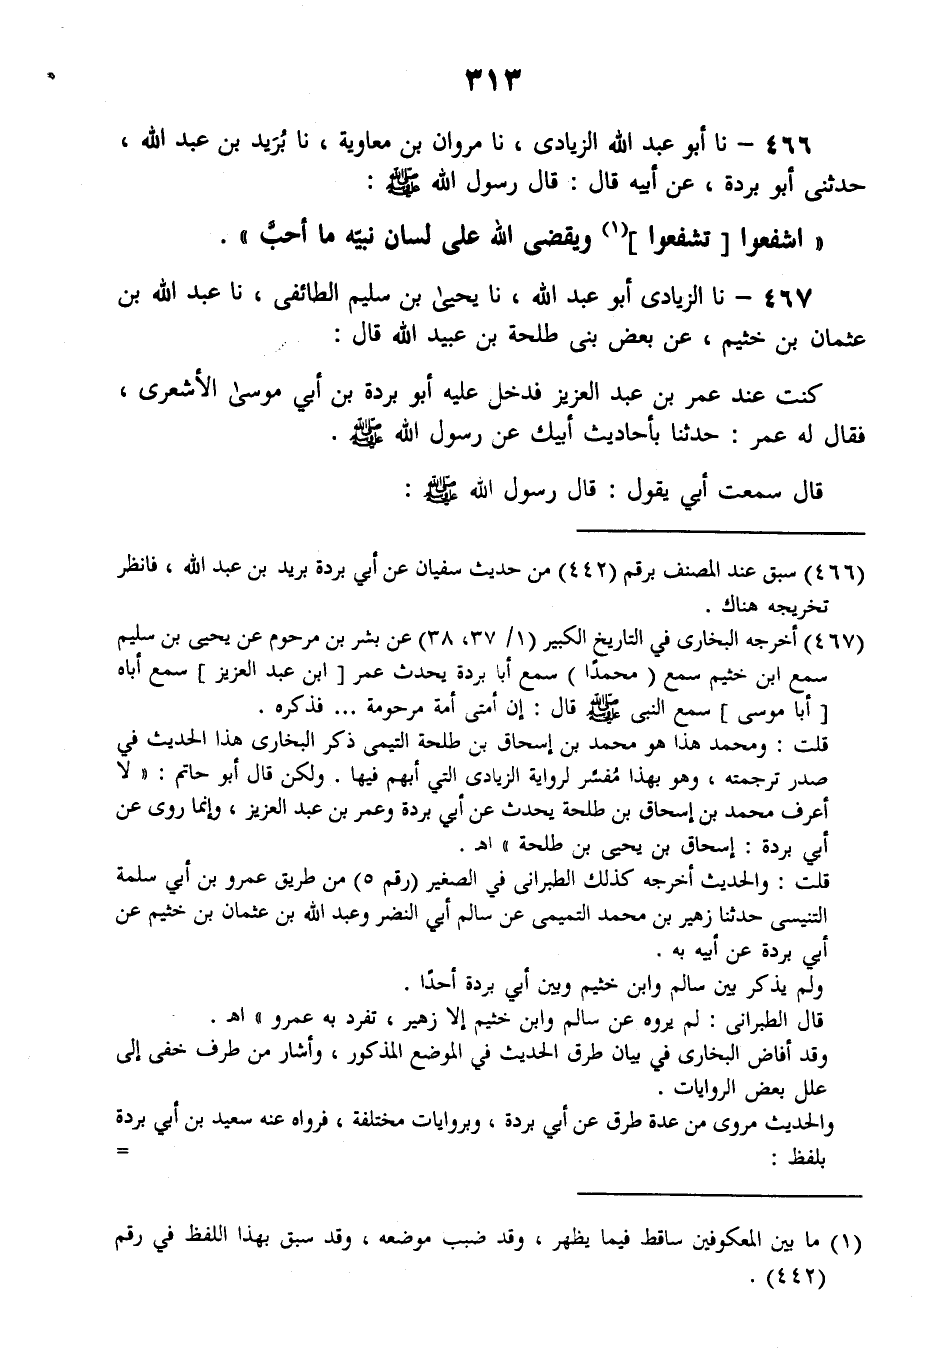 ٣١٣
٤٦٦ – نا أبو عبد الله الزيادى ، نا مروان بن معاوية ، نا بُرَيد بن عبد الله ،
حدثنى أبو بردة ، عن أبيه قال : قال رسول الله ﷺ :
« اشفعوا [ تشفعوا ](١) ويقضى الله على لسان نبيّه ما أحبَّ » .
٤٦٧ – نا الزيادى أبو عبد الله ، نا يحيىٰ بن سليم الطائفى ، نا عبد الله بن
عثمان بن خثيم ، عن بعض بنى طلحة بن عبيد الله قال :
كنت عند عمر بن عبد العزيز فدخل عليه أبو بردة بن أبي موسىٰ الأشعرى ،
فقال له عمر : حدثنا بأحاديث أبيك عن رسول الله ﷺ .
قال سمعت أبي يقول : قال رسول الله ﷺ :
(٤٦٦) سبق عند المصنف برقم (٤٤٢) من حديث سفيان عن أبي بردة بريد بن عبد الله ، فانظر
تخريجه هناك .
(٤٦٧) أخرجه البخارى في التاريخ الكبير (١/ ٣٧، ٣٨) عن بشر بن مرحوم عن يحيى بن سليم
سمع ابن خثيم سمع ( محمدًا ) سمع أبا بردة يحدث عمر [ ابن عبد العزيز ] سمع أباه
[ أبا موسى ] سمع النبى ﷺ قال : إن أمتى أمة مرحومة ... فذكره .
قلت : ومحمد هذا هو محمد بن إسحاق بن طلحة التيمى ذكر البخارى هذا الحديث في
صدر ترجمته ، وهو بهذا مُفسّر لرواية الزيادى التي أبهم فيها . ولكن قال أبو حاتم : « لا
أعرف محمد بن إسحاق بن طلحة يحدث عن أبي بردة وعمر بن عبد العزيز ، وإنما روى عن
أبي بردة : إسحاق بن يحيى بن طلحة » اهـ .
قلت : والحديث أخرجه كذلك الطبرانى في الصغير (رقم ٥) من طريق عمرو بن أبي سلمة
التنيسى حدثنا زهير بن محمد التميمى عن سالم أبي النضر وعبد الله بن عثمان بن خثيم عن
أبي بردة عن أبيه به .
ولم يذكر بين سالم وابن خثيم وبين أبي بردة أحدًا .
قال الطبرانى : لم يروه عن سالم وابن خثيم إلا زهير ، تفرد به عمرو » اهـ .
وقد أفاض البخارى في بيان طرق الحديث في الموضع المذكور ، وأشار من طرف خفى إلى
علل بعض الروايات .
والحديث مروى من عدة طرق عن أبي بردة ، وبروايات مختلفة ، فرواه عنه سعيد بن أبي بردة
بلفظ : =
(١) ما بين المعكوفين ساقط فيما يظهر ، وقد ضبب موضعه ، وقد سبق بهذا اللفظ في رقم
(٤٤٢) .